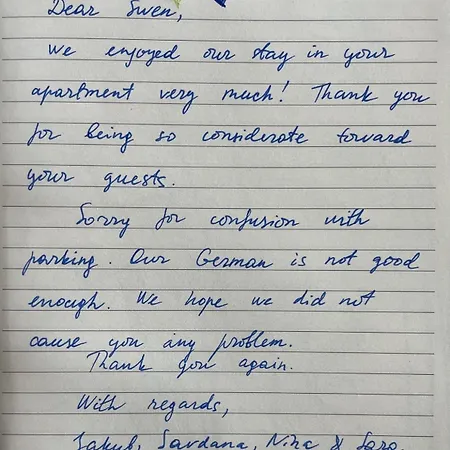 Dear Swen,
We enjoyed our stay in your
apartment very much! Thank you
for being so considerate toward
your guests.
Sorry for confusion with
parking. Our German is not good
enough. We hope we did not
cause you any problem.
Thank you again.
With regards,
Jakub, Sardana, Nina & Sara.